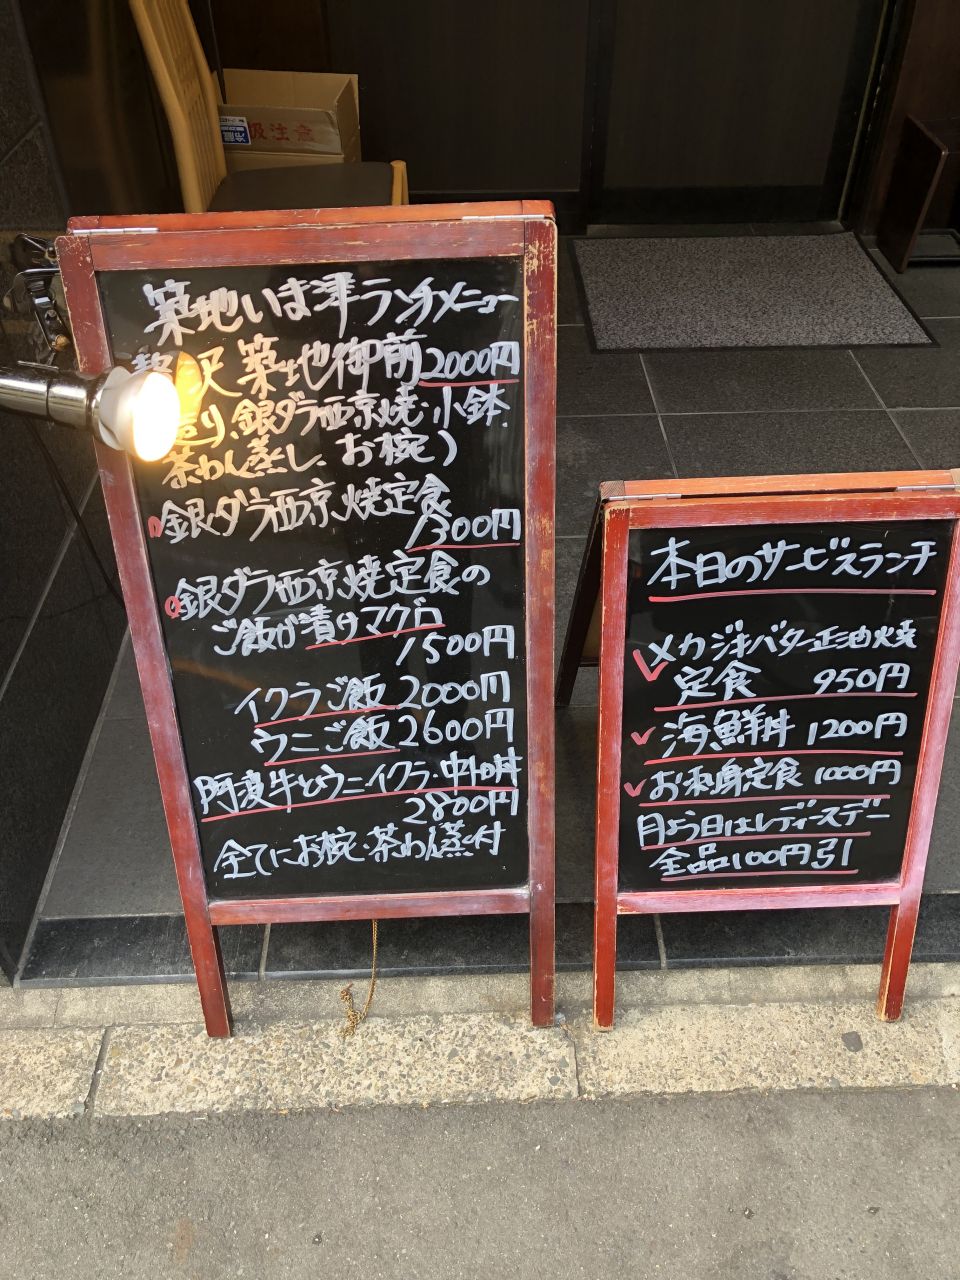 築地いま津ランチメニュー
贅沢築地御前2000円
造り、銀ダラ西京焼・小鉢
茶わん蒸し、お椀)
銀ダラ西京焼定食
1300円
銀ダラ西京焼定食の
ご飯が漬けマグロ
1500円
イクラご飯 2000円
ウニご飯 2600円
阿波牛とウニイクラ・中トロ丼
2800円
全てにお椀・茶わん蒸し付
本日のサービスランチ
メカジキバター正油焼
定食 950円
海鮮丼 1200円
お刺身定食 1000円
月よう日はレディースデー
全品100円引
注意
冷蔵